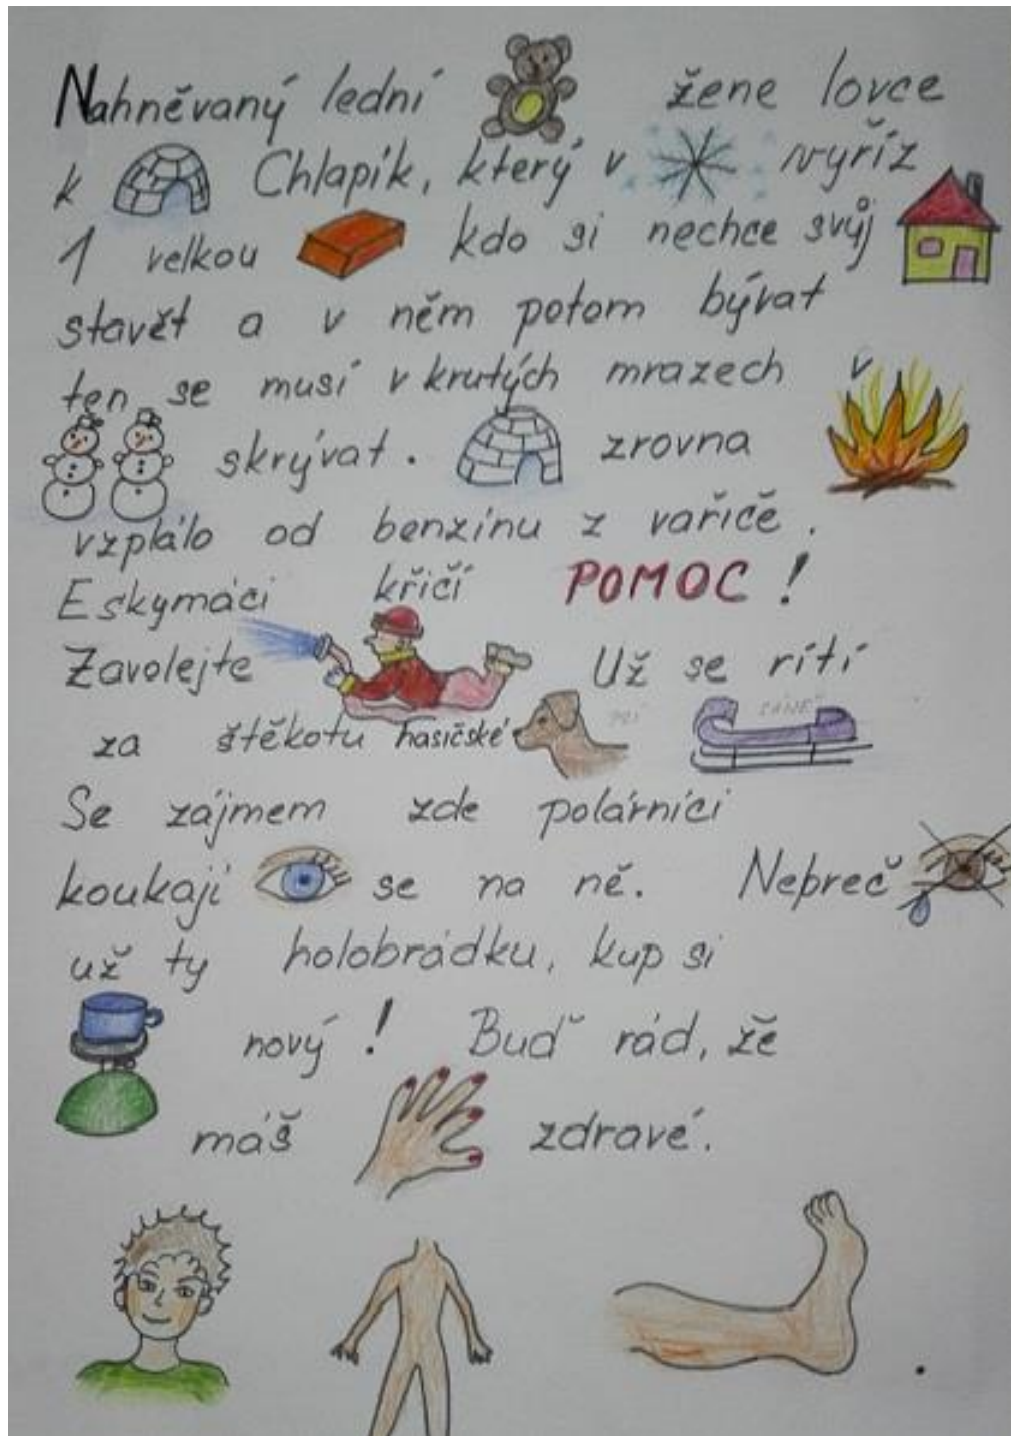 Nahněvaný lední žene lovce
k Chlapík, který v vyříz
1 velkou kdo si nechce svůj
stavět a v něm potom bývat
ten se musí v krutých mrazech v
skrývat. zrovna
vzplálo od benzínu z vařičě.
Eskymáci křičí POMOC!
Zavolejte Už se rítí
za štěkotu hasičské PSI SÁNĚ
Se zájmem zde polárníci
koukají se na ně. Nebreč
už ty holobrádku, kup si
nový! Buď rád, že
máš zdravé.